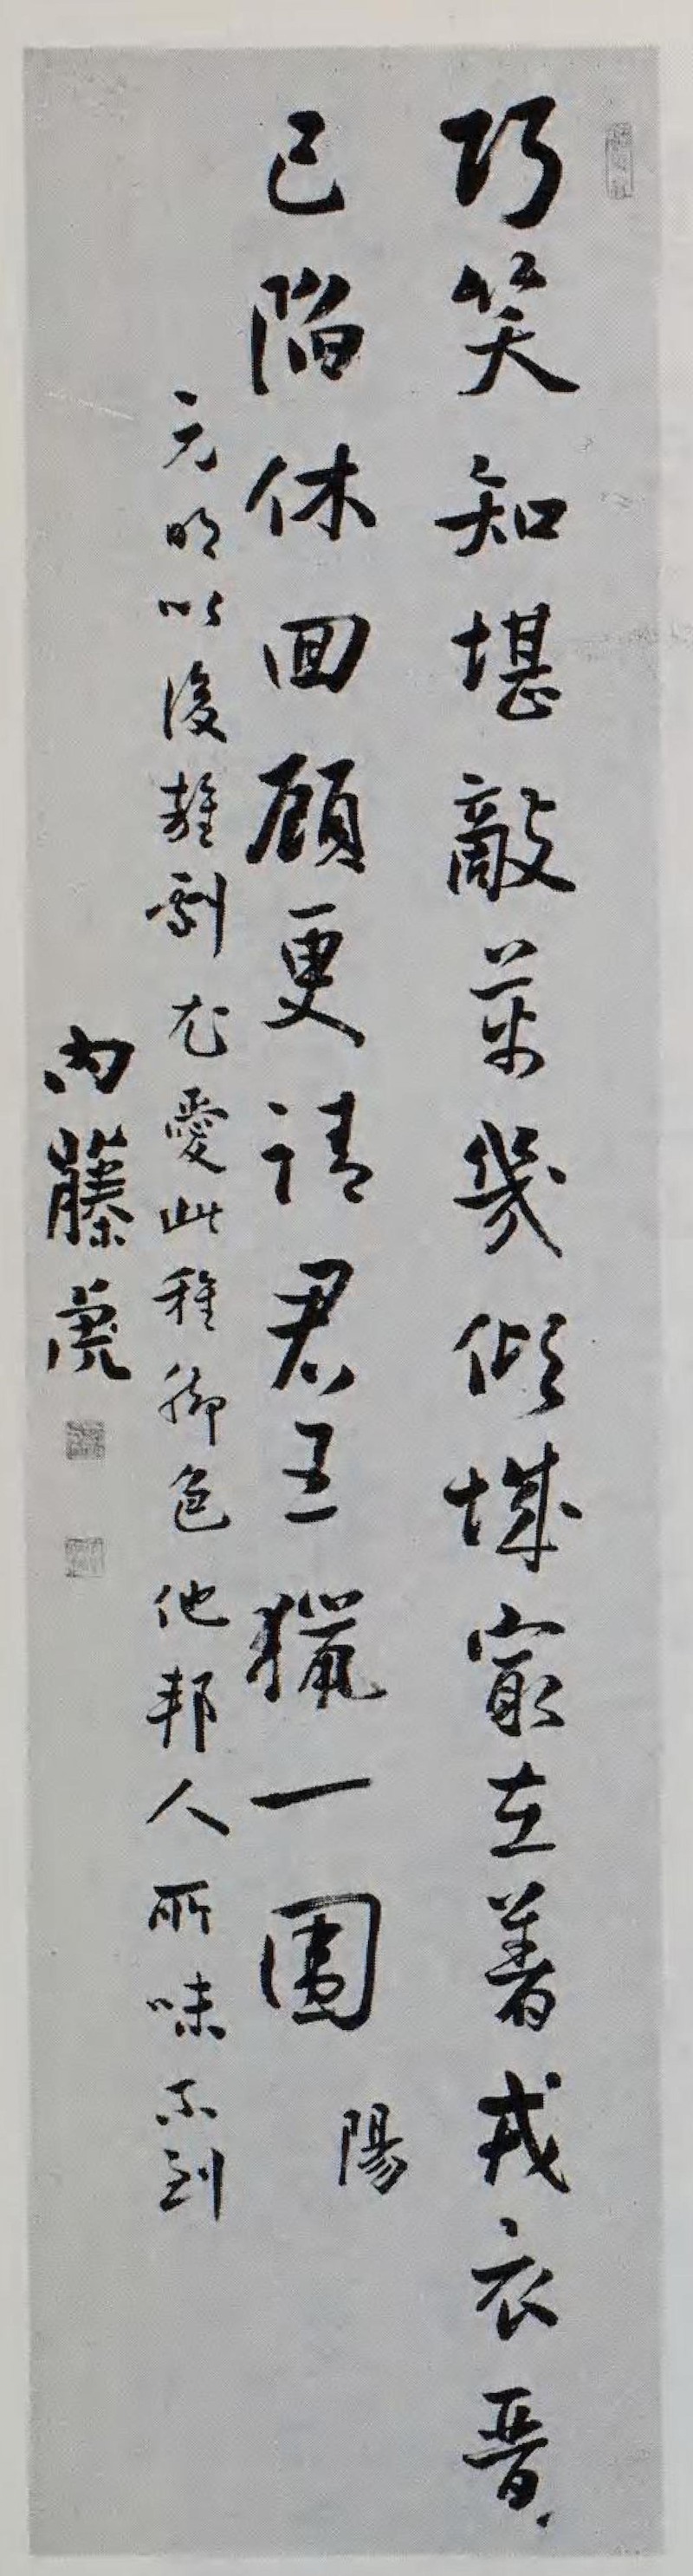 巧笑知堪敵萬幾傾城㝡在著戎衣晋
已陷休回顧更請君王獵一圍
陽
元明以後雜劇尤愛此種脚色他邦人所味不到
内藤虎